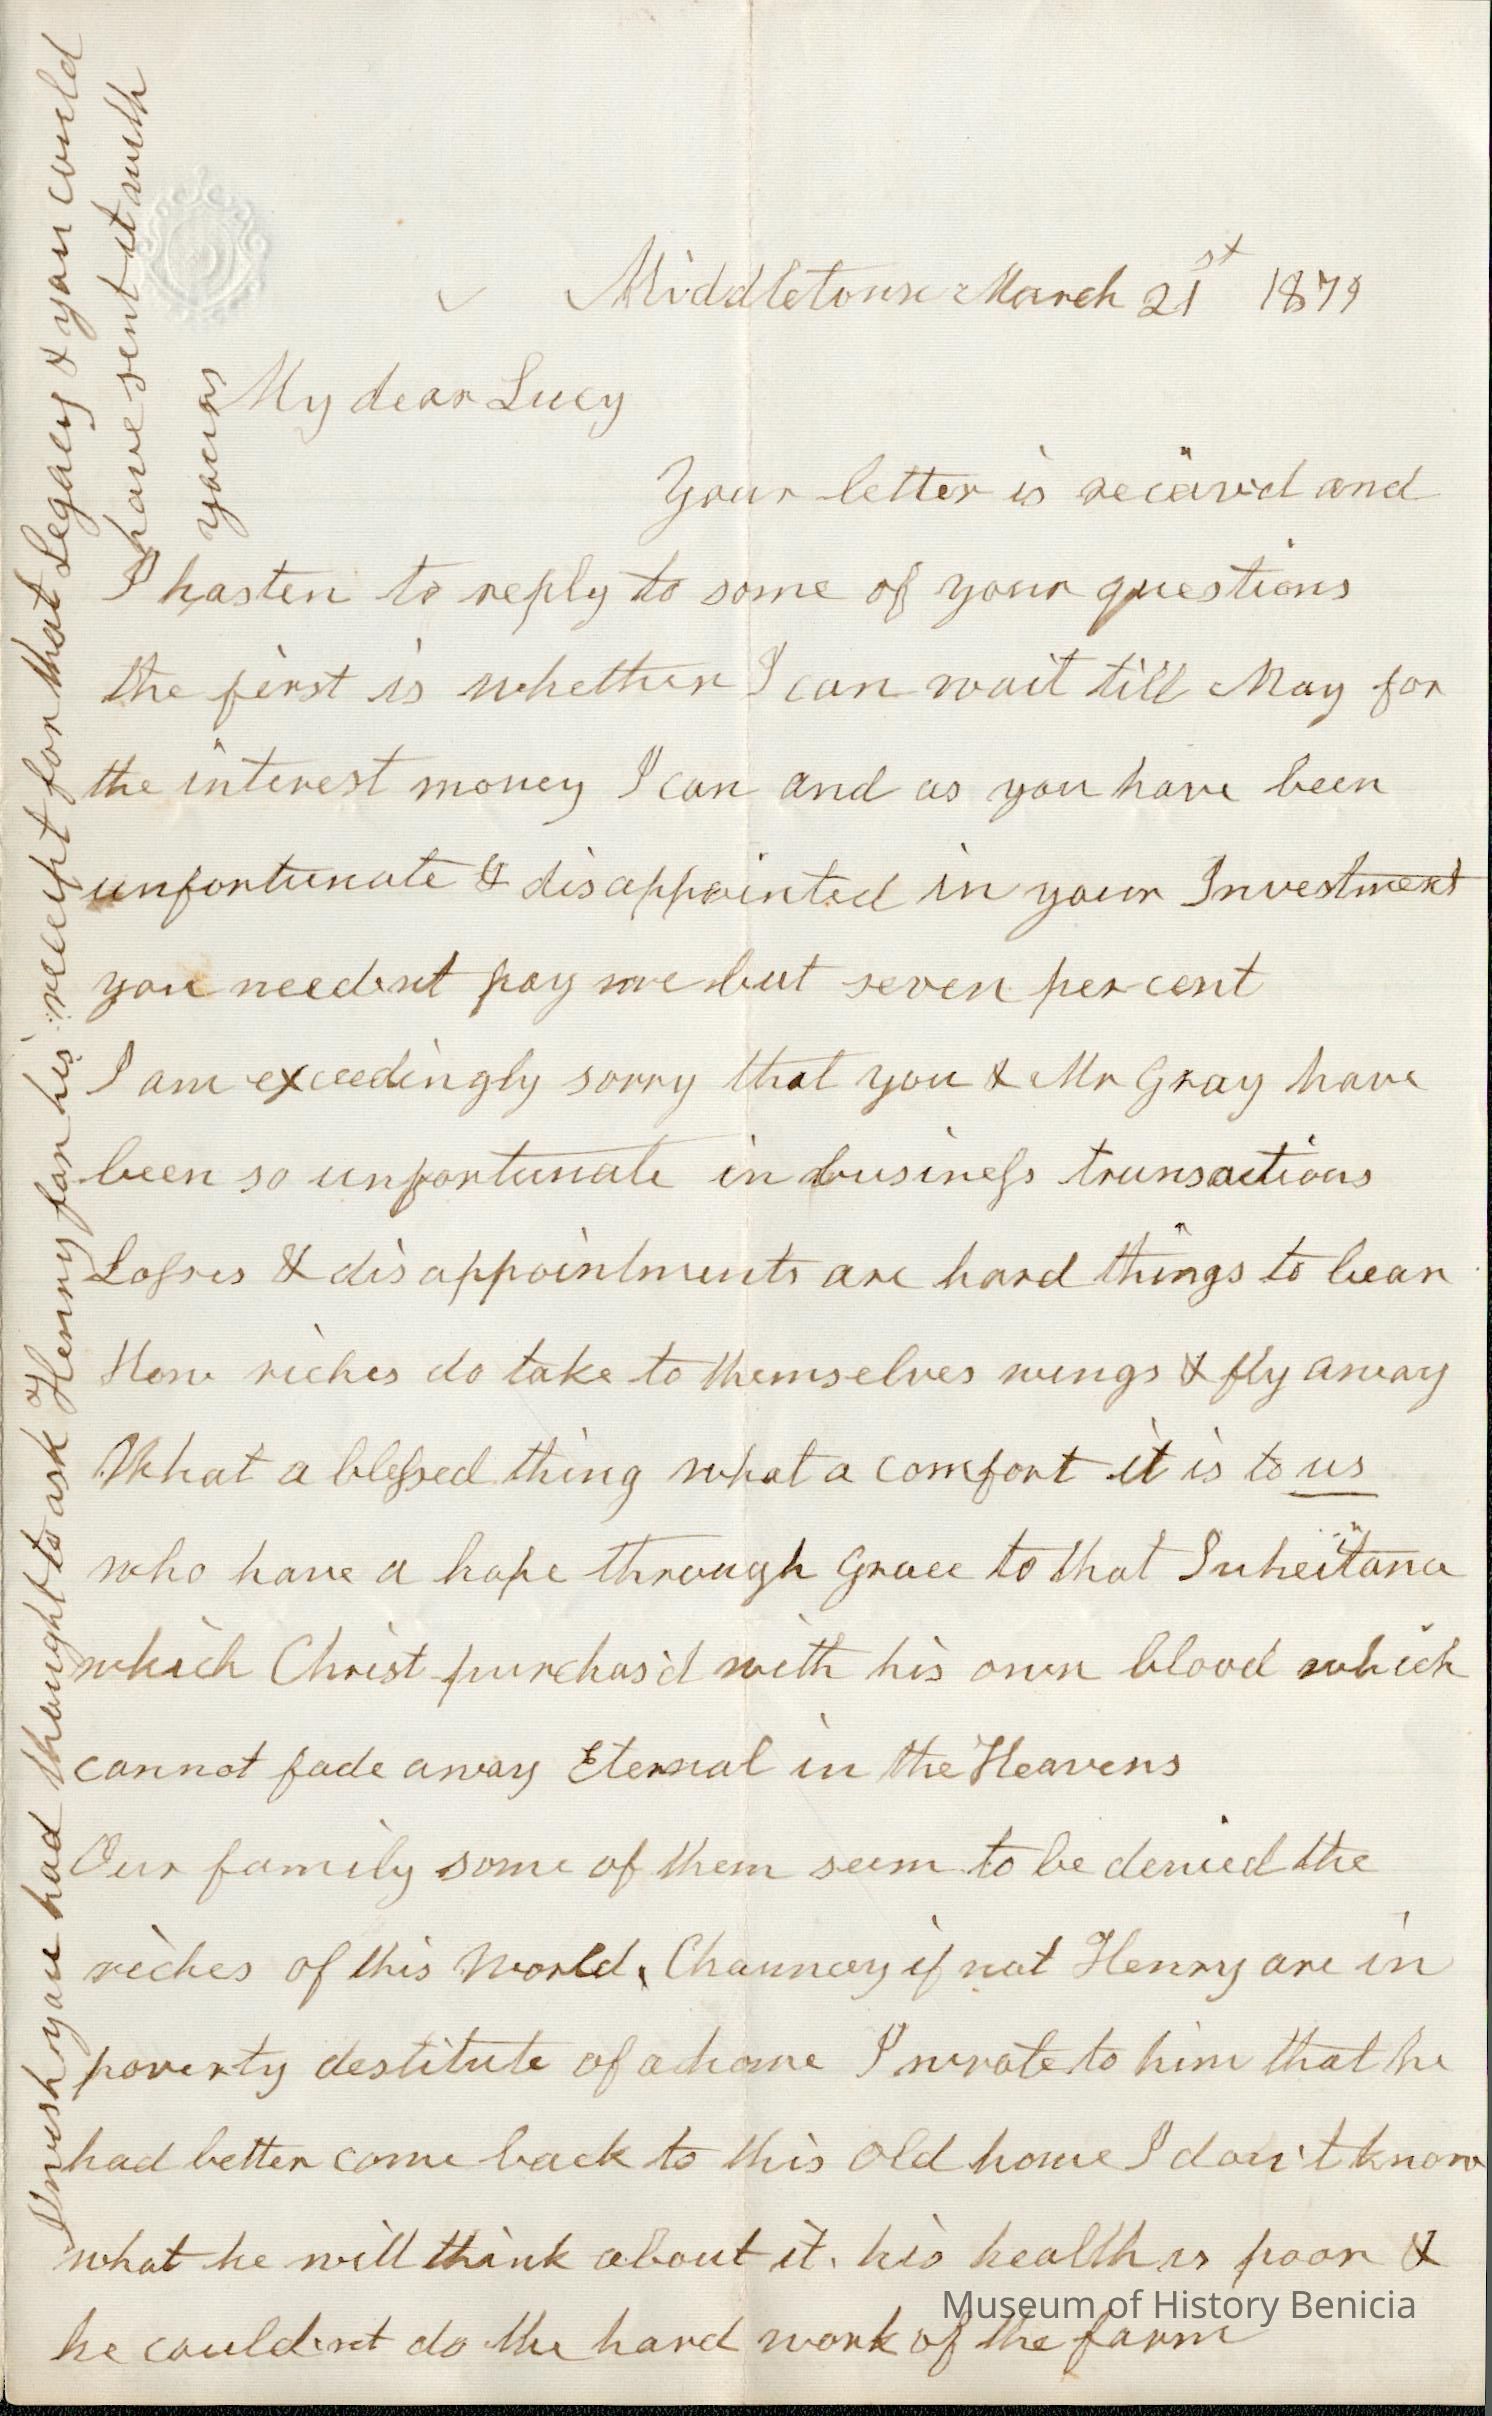 Middletown March 21st 1879
My dear Lucy
Your letter is recievd and
I hasten to reply to some of your questions
the first is whether I can wait till May for
the interest money I can and as you have been
unfortunate & disappointed in your Investment
you needent pay me but seven per cent
I am exceedingly sorry that you & Mr Gray have
been so unfortunate in business transactions
Losses & disappointments are hard things to bear
How riches do take to themselves wings & fly away
What a blessed thing what a comfort it is to us
who have a hope through Grace to that Inheitance
which Christ purchas'd with his own blood which
cannot fade away Eternal in the Heavens
Our family some of them seem to be denied the
riches of this World, Chauncey if not Henry are in
poverty destitute of a home I wrote to him that he
had better come back to this old home I don't know
what he will think about it. his health is poor &
he couldent do the hard work of the farm
I wish you had thought to ask of Henry for his receipt for that Legacy & you could
have sent it with
yours
Museum of History Benicia